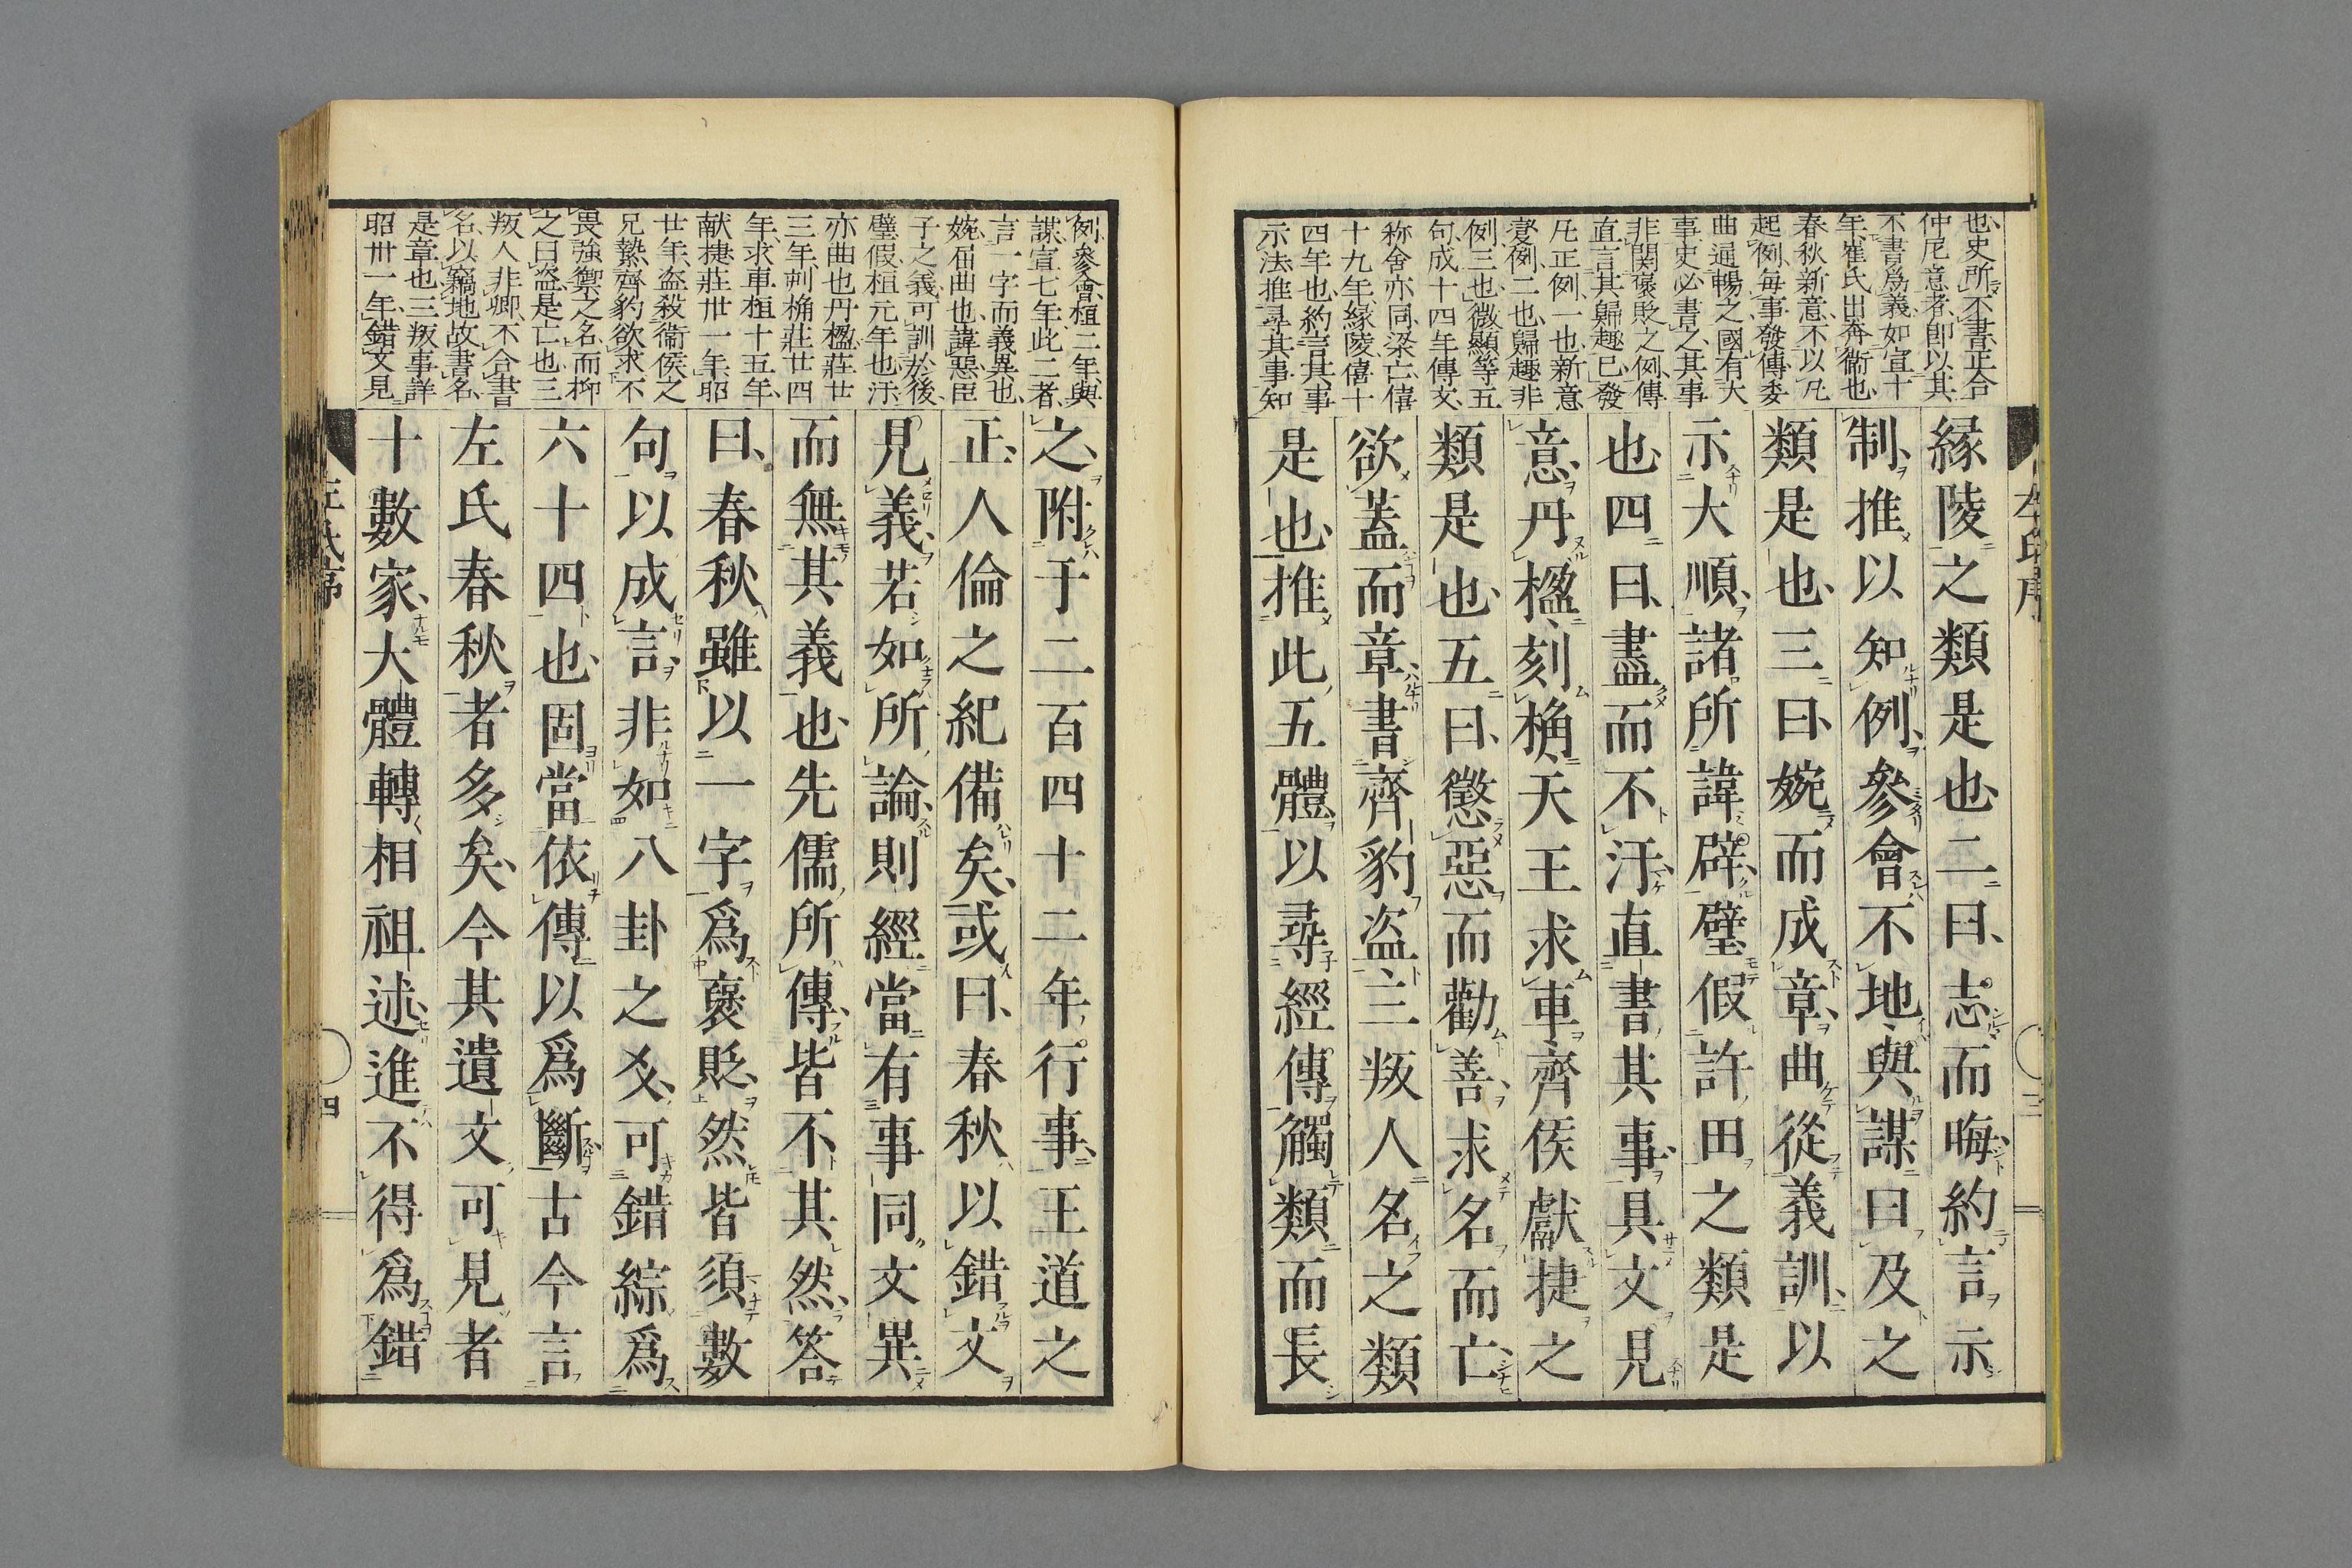 也史所不書正合
仲尼意者卽以其
不書爲義如宣十
年崔氏出奔衞也
春秋新意不以凡
起例每事發傳委
曲通暢之國有大
事史必書之其事
非関褒貶之例傳
直言其歸趣已發
凡正例一也新意
變例二也歸趣非
例三也微顯等五
句成十四年傳文
称舍亦同梁亡僖
十九年緣陵僖十
四年也約言其事
示法推尋其事知
緣陵之類是也二曰志而晦約言示
制推以知例參會不地與謀曰及之
類是也三曰婉而成章曲從義訓以
示大順諸所諱辟璧假許田之類是
也四曰盡而不汙直書其事具文見
意丹楹刻桷天王求車齊侯獻捷之
類是也五曰懲惡而勸善求名而亡
欲蓋而章書齊豹盗三叛人名之類
是也推此五體以尋經傳觸類而長
左氏序
三
例參會桓二年與
謀宣七年此二者
言一字而義異也
婉屈曲也諱惡臣
子之義可訓於後
璧假桓元年也汙
亦曲也丹楹莊廿
三年刻桷莊廿四
年求車桓十五年
献捷莊卅一年昭
廿年盗殺衞侯之
兄縶齊豹欲求不
畏強禦之名而抑
之曰盗是亡也三
叛人非卿不合書
名以竊地故書名
是章也三叛事詳
昭卅一年錯文見
之附于二百四十二年行事王道之
正人倫之紀備矣或曰春秋以錯文
見義若如所論則經當有事同文異
而無其義也先儒所傳皆不其然答
曰春秋雖以一字爲褒貶然皆須數
句以成言非如八卦之爻可錯綜爲
六十四也固當依傳以爲斷古今言
左氏春秋者多矣今其遺文可見者
十數家大體轉相祖述進不得爲錯
左氏序
四